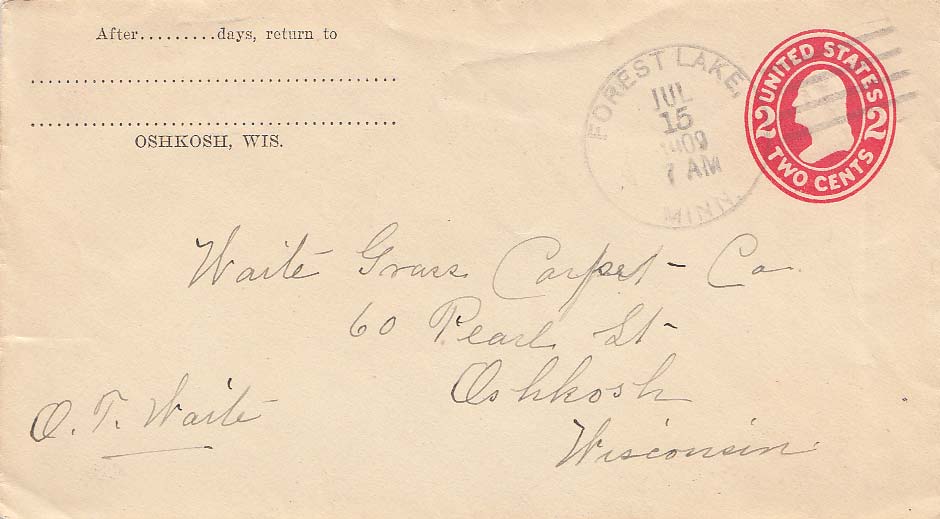 After.........days, return to
OSHKOSH, WIS.
FOREST LAKE,
JUL
15
1909
7 AM
MINN.
UNITED STATES
2 2
TWO CENTS
Waite Grass Carpet Co.
60 Pearl St
Oshkosh
Wisconsin
O. T. Waite